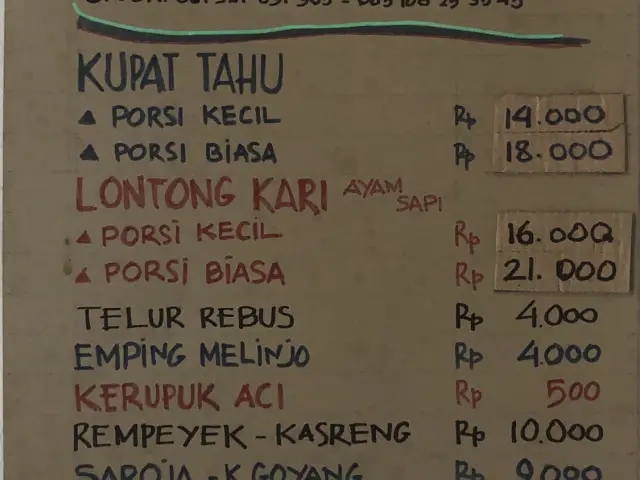 KUPAT TAHU
▲ PORSI KECIL Rp 14.000
▲ PORSI BIASA Rp 18.000
LONTONG KARI AYAM SAPI
▲ PORSI KECIL Rp 16.000
▲ PORSI BIASA Rp 21.000
TELUR REBUS Rp 4.000
EMPING MELINJO Rp 4.000
KERUPUK ACI Rp 500
REMPEYEK - KASRENG Rp 10.000
SAROJA - K.GOYANG Rp 9.000